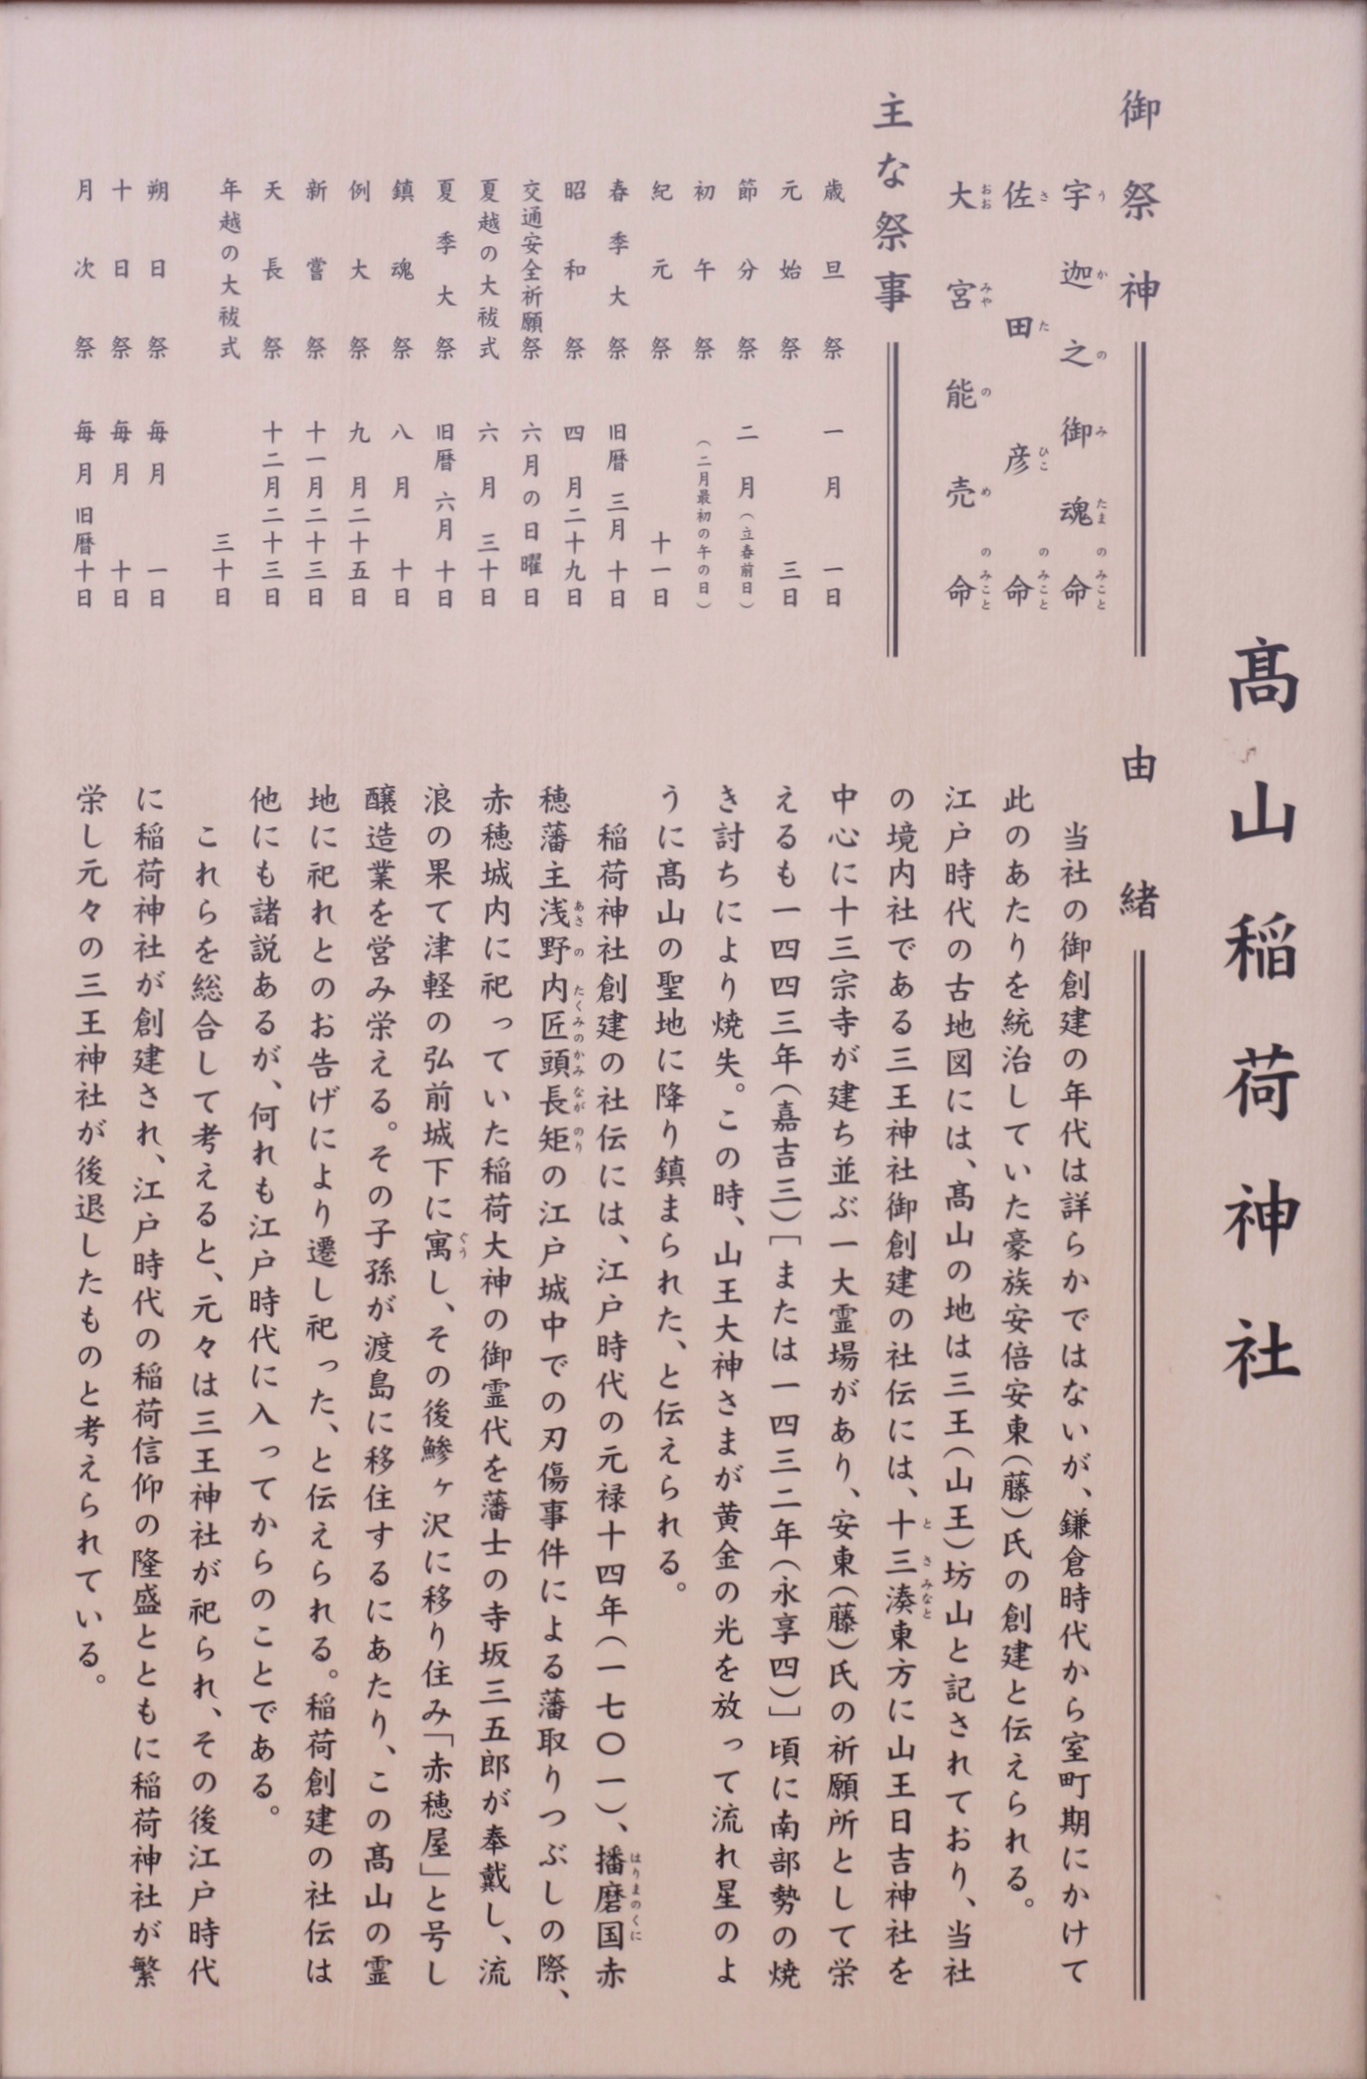 髙山稲荷神社
御祭神
宇迦之御魂命
佐田彦命
大宮能売命
主な祭事
歳旦祭 一月一日
元始祭 三日
節分祭 二月(立春前日)
初午祭 (二月最初の午の日)
紀元祭 十一日
春季大祭 旧暦三月十日
昭和祭 四月二十九日
交通安全祈願祭 六月の日曜日
夏越の大祓式 六月三十日
夏季大祭 旧暦六月十日
鎮魂祭 八月十日
例大祭 九月二十五日
新嘗祭 十一月二十三日
天長祭 十二月二十三日
年越の大祓式 三十日
朔日祭 毎月一日
十日祭 毎月十日
月次祭 毎月旧暦十日
由緒
当社の御創建の年代は詳らかではないが、鎌倉時代から室町期にかけて
此のあたりを統治していた豪族安倍安東(藤)氏の創建と伝えられる。
江戸時代の古地図には、髙山の地は三王(山王)坊山と記されており、当社
の境内社である三王神社御創建の社伝には、十三湊東方に山王日吉神社を
中心に十三宗寺が建ち並ぶ一大霊場があり、安東(藤)氏の祈願所として栄
えるも一四四三年(嘉吉三)[または一四三二年(永享四)]頃に南部勢の焼
き討ちにより焼失。この時、山王大神さまが黄金の光を放って流れ星のよ
うに髙山の聖地に降り鎮まられた、と伝えられる。
稲荷神社創建の社伝には、江戸時代の元禄十四年(一七〇一)、播磨国赤
穂藩主浅野内匠頭長矩の江戸城中での刃傷事件による藩取りつぶしの際、
赤穂城内に祀っていた稲荷大神の御霊代を藩士の寺坂三五郎が奉戴し、流
浪の果て津軽の弘前城下に寓し、その後鰺ヶ沢に移り住み「赤穂屋」と号し
醸造業を営み栄える。その子孫が渡島に移住するにあたり、この髙山の霊
地に祀れとのお告げにより遷し祀った、と伝えられる。稲荷創建の社伝は
他にも諸説あるが、何れも江戸時代に入ってからのことである。
これらを総合して考えると、元々は三王神社が祀られ、その後江戸時代
に稲荷神社が創建され、江戸時代の稲荷信仰の隆盛とともに稲荷神社が繁
栄し元々の三王神社が後退したものと考えられている。